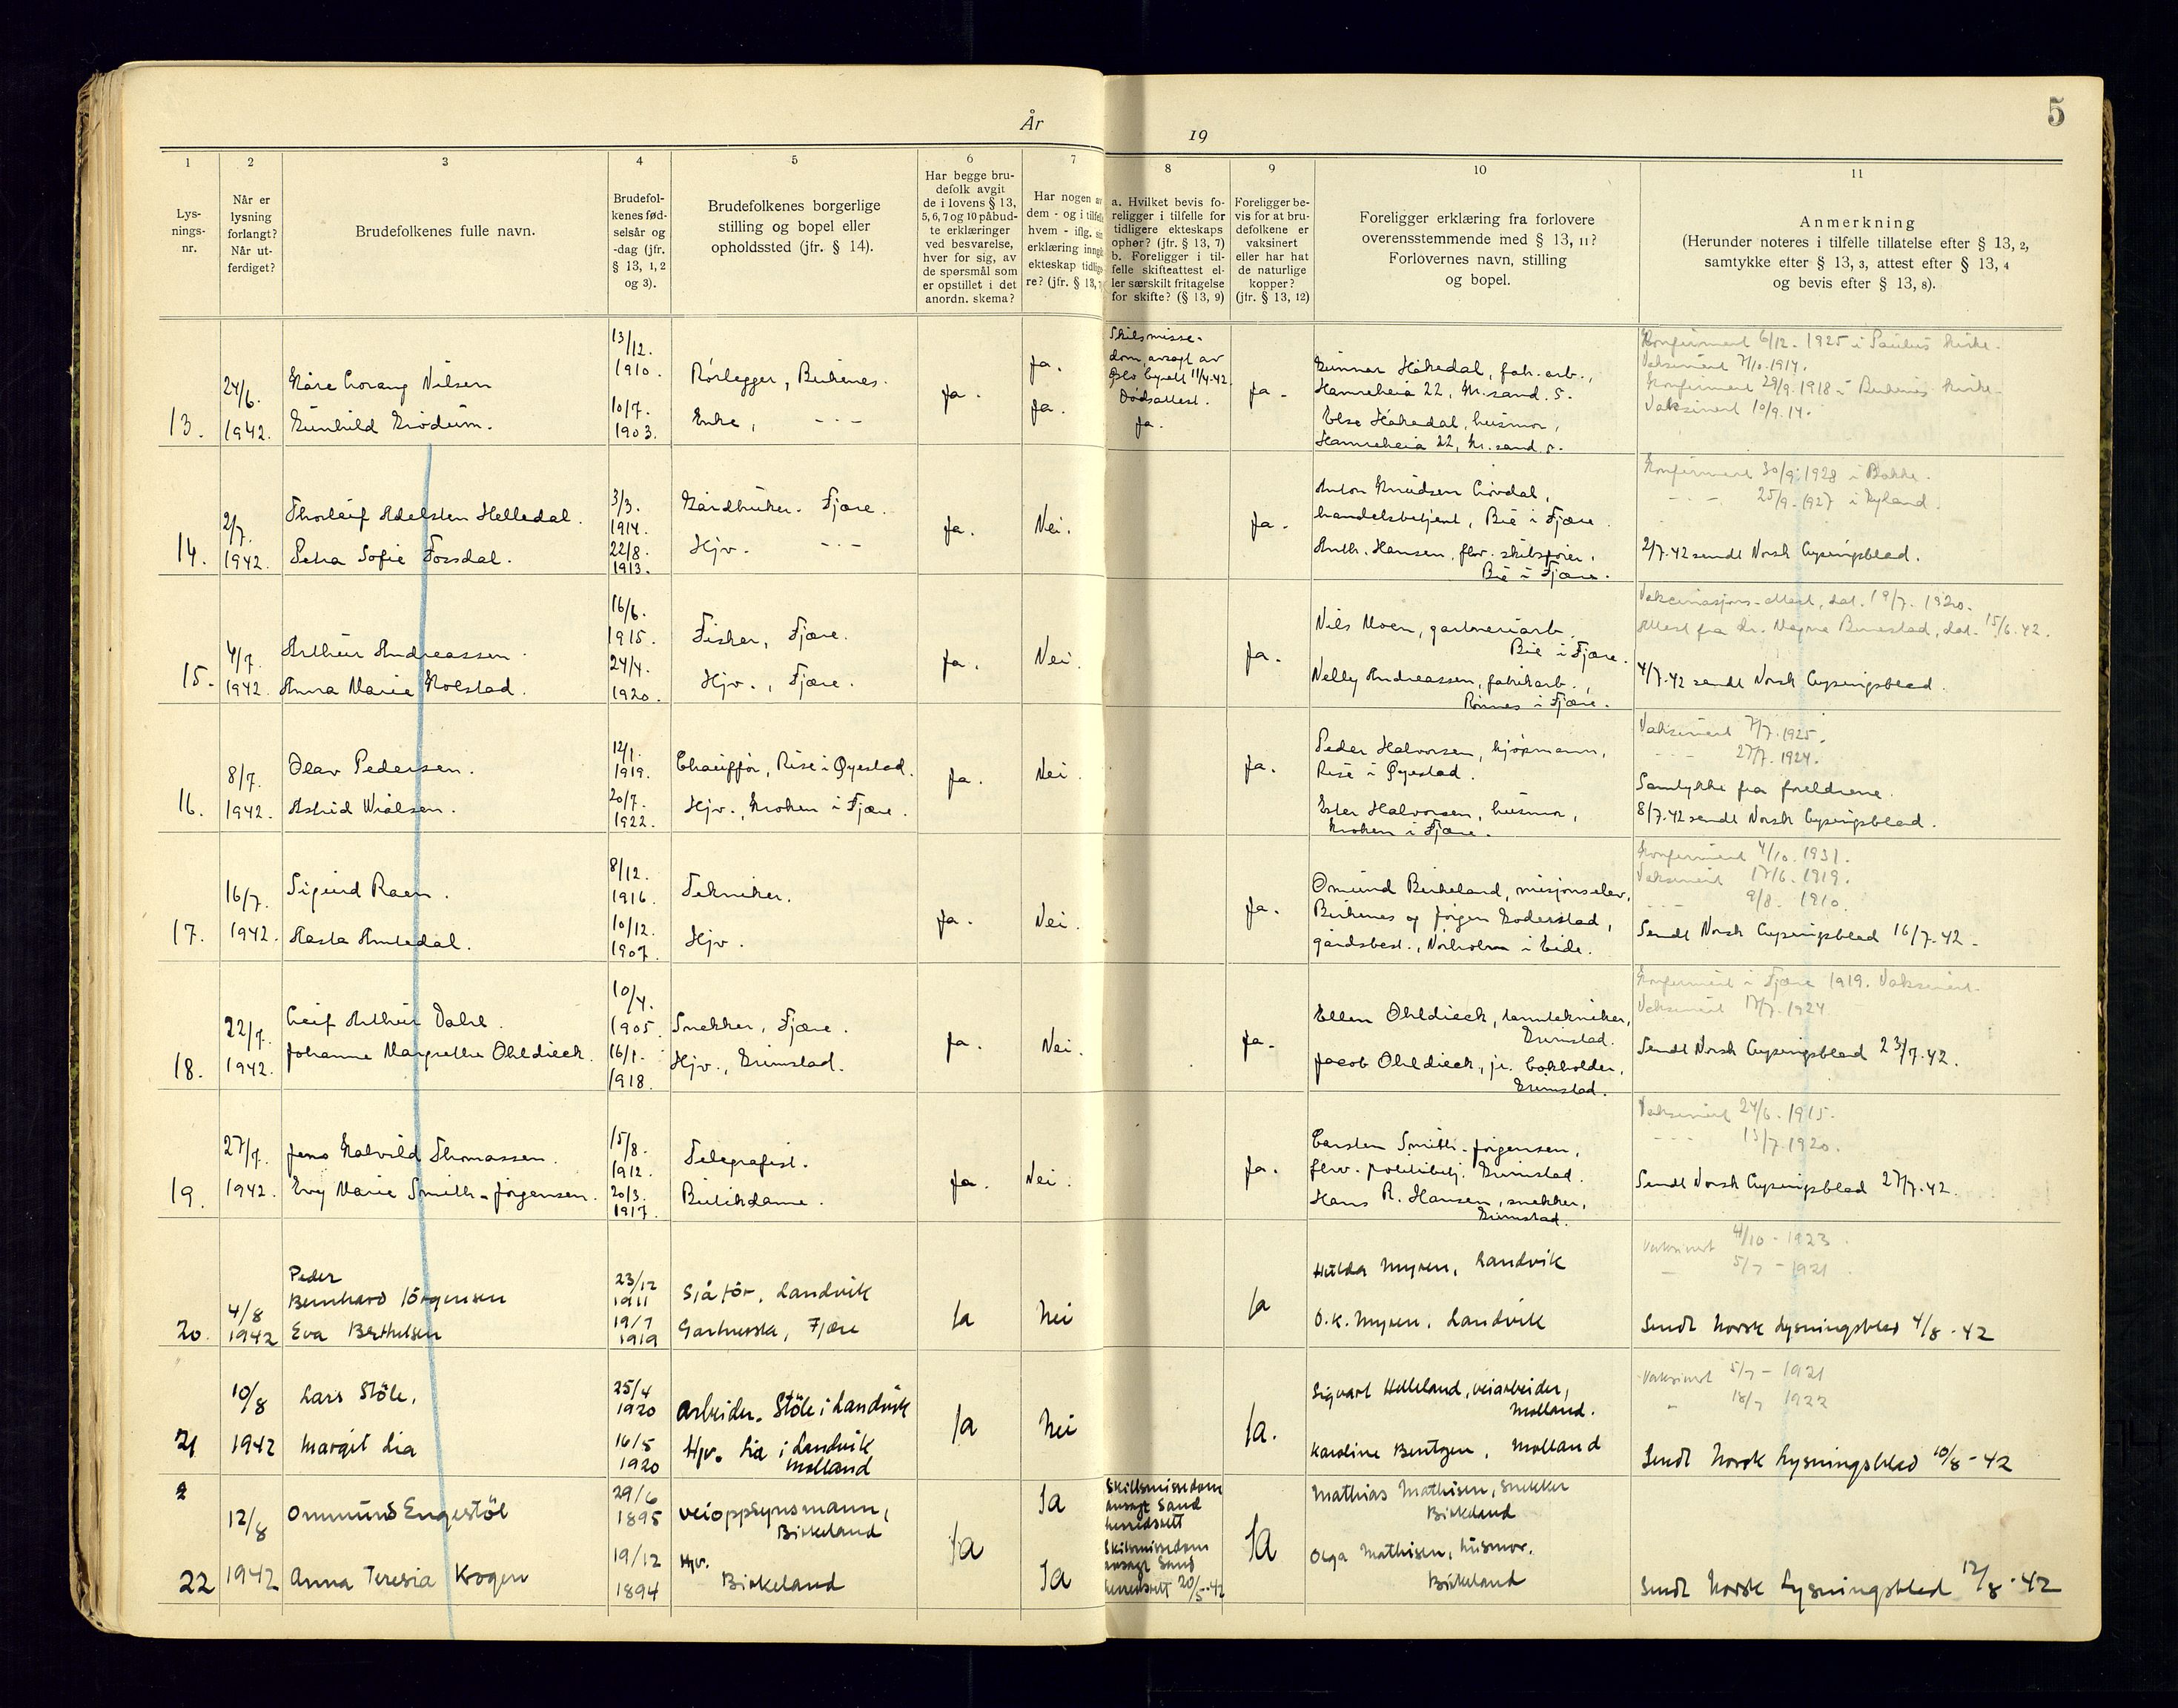 5
År
19
1
2
3
4
5
6
7
8
9
10
11
Lys-
nings-
nr.
Når er
lysning
forlangt?
Når ut-
ferdiget?
Brudefolkenes fulle navn.
Brudefol-
kenes fød-
selsår og
-dag (jfr.
§ 13, 1, 2
og 3).
Brudefolkenes borgerlige
stilling og bopel eller
opholdssted (jfr. § 14).
Har begge bru-
defolk avgit
de i lovens § 13,
5, 6, 7 og 10 påbud-
te erklæringer
ved besvarelse,
hver for sig, av
de spørsmål som
er opstillet i det
anordn. skema?
Har nogen av
dem - og i tilfelle
hvem - iflg. sin
erklæring inngått
ekteskap tidlige-
re? (jfr. § 13, 7
a. Hvilket bevis fo-
religger i tilfelle for
tidligere ekteskaps
ophør? (jfr. § 13, 7)
b. Foreligger i til-
felle skifteattest el-
ler særskilt fritagelse
for skifte? (§ 13, 9)
Foreligger be-
vis for at bru-
defolkene er
vaksinert
eller har hat
de naturlige
kopper?
(jfr. § 13, 12)
Foreligger erklæring fra forlovere
overensstemmende med § 13, 11?
Forlovernes navn, stilling
og bopel.
Anmerkning
(Herunder noteres i tilfelle tillatelse efter § 13, 2,
samtykke efter § 13, 3, attest efter § 13, 4
og bevis efter § 13, 8).
13.
24/6.
1942.
Kåre Nilsen
Gunhild Grødum.
13/12.
1910.
10/7.
1903.
Rørlegger, Birkenes.
Enke, - - -
Ja.
Ja.
Ja.
Skilsmisse-
dom avsagt av
Oslo byrett 11/4-42.
Dødsattest.
Ja.
Ja.
Gunnar Håkedal, fab.arb.,
Hanneheia 22, Kr.sand. S.
Else Håkedal, husmor,
Hanneheia 22, Kr.sand. S.
Konfirmert 6/12. 1925 i Paulus kirke.
Vaksinert 7/10. 1914.
Konfirmert 29/9. 1918 i Birkenes kirke.
Vaksinert 10/9.14.
14.
2/7.
1942.
Thorleif Adelsten Helledal.
Petra Sofie Fossdal.
3/3.
1914.
22/8.
1913.
Gårdbruker. Fjære.
Hjv. - - -
Ja.
Nei.
Ja.
Anton Knudsen Løvdal,
handelsbetjent, Bie i Fjære.
Anth. Hansen, fhv. skibsfører,
Bie i Fjære.
Konfirmert 30/9. 1928 i Bakke.
- - - 25/9. 1927 i Gyland.
2/7.42 sendt Norsk Lysingsblad.
15.
4/7.
1942.
Arthur Andreassen.
Anna Marie Kolstad.
16/6.
1915.
24/4.
1920.
Fisker, Fjære.
Hjv., Fjære.
Ja.
Nei.
Ja.
Nils Moen, gartneriarb.
Bie i Fjære.
Nelly Andreassen, fabrikarb.,
Rønnes i Fjære.
Vaksinasjons-attest, dat. 19/7. 1920.
Attest fra dr. Magne dat. 15/6.42.
4/7.42 sendt Norsk Lysingsblad.
16.
8/7.
1942.
Olav Pedersen.
Astrid Wiålsen.
12/1.
1919.
20/7.
1922.
Chauffør, Rise i Øyestad.
Hjv., Kroken i Fjære.
Ja.
Nei.
Ja.
Peder Halvorsen, kjøpmann,
Rise i Øyestad.
Ester Halvorsen, husmor,
Kroken i Fjære.
Vaksinert 7/7. 1925.
- - - 27/7. 1924.
Samtykke fra foreldrene.
8/7.42 sendt Norsk Lysingsblad.
17.
16/7.
1942.
Sigurd Raen.
Aasta Amledal.
8/12.
1916.
10/12.
1907.
Tekniker.
Hjv.
Ja.
Nei.
Ja.
Omund Birkeland, misjonselev,
Birkenes og Jørgen Goderstad,
gårdsbest., Nørholm i Eide.
Konfirmert 4/10. 1931.
Vaksinert 17/6. 1919.
- - - 9/8. 1910.
Sendt Norsk Lysingsblad 16/7-42.
18.
22/7.
1942.
Leif Arthur Dahl.
Johanne Margrethe Ohldieck.
10/4.
1905.
16/1.
1918.
Snekker, Fjære.
Hjv., Grimstad.
Ja.
Nei.
Ja.
Ellen Ohldieck, tanntekniker,
Grimstad.
Jacob Ohldieck, jr. bokholder,
Grimstad.
Konfirmert i Fjære 1919. Vaksinert.
Vaksinert 17/7. 1924
Sendt Norsk Lysingsblad 23/7.42.
19.
27/7.
1942.
Jens Halvild Thomassen.
Evy Marie Smith-Jørgensen.
15/8.
1912.
20/3.
1917.
Telegrafist.
Butikdame.
Ja.
Nei.
Ja.
Carsten Smith-Jørgensen,
fhv. politibetj. Grimstad.
Hans R. Hansen, snekker,
Grimstad.
Vaksinert 24/6. 1915.
- - - 13/7.1920.
Sendt Norsk Lysingsblad 27/7.42.
20.
4/8
1942
Peder
Bernhard Jörgensen
Eva Berthelsen
23/12
1911
19/7
1919
Sjåför, Landvik
Gartnerska, Fjære
Ja
Nei
Ja
Hulda Myren, Landvik
O.K. Myren, Landvik
Vaksinert 4/10 - 1923.
" 5/7 - 1921.
Sendt Norsk Lysningsblad 4/8-42
21
10/8
1942
Lars Stöle.
Margit Lia
25/4
1920
16/5
1920
Arbeider. Stöle i Landvik
Hjv. Lia i Landvik
Molland
Ja
Nei
Ja.
Sigvart Helleland, veiarbeider,
Molland.
Karoline Bentzen, Molland
Vaksinert 5/7 - 1921
" 18/7 1922
Sendt Norsk Lysningsblad 10/8-42
22
12/8
1942
Ommund Engestöl
Anna Teresia Krogen
29/6
1895
19/12
1894
Veioppsynsmann,
Birkeland
Hjv.
Birkeland
Ja
Ja
Ja
Skillsmissedom
avsagt Sand
herredsrett
Skilsmissedom
avsagt Sand
herredsrett 20/5-42
Ja
Mathias Mathisen, snekker
Birkeland
Olga Mathisen, husmor.
Birkeland
Sendt Norsk Lysningsblad 12/8-42